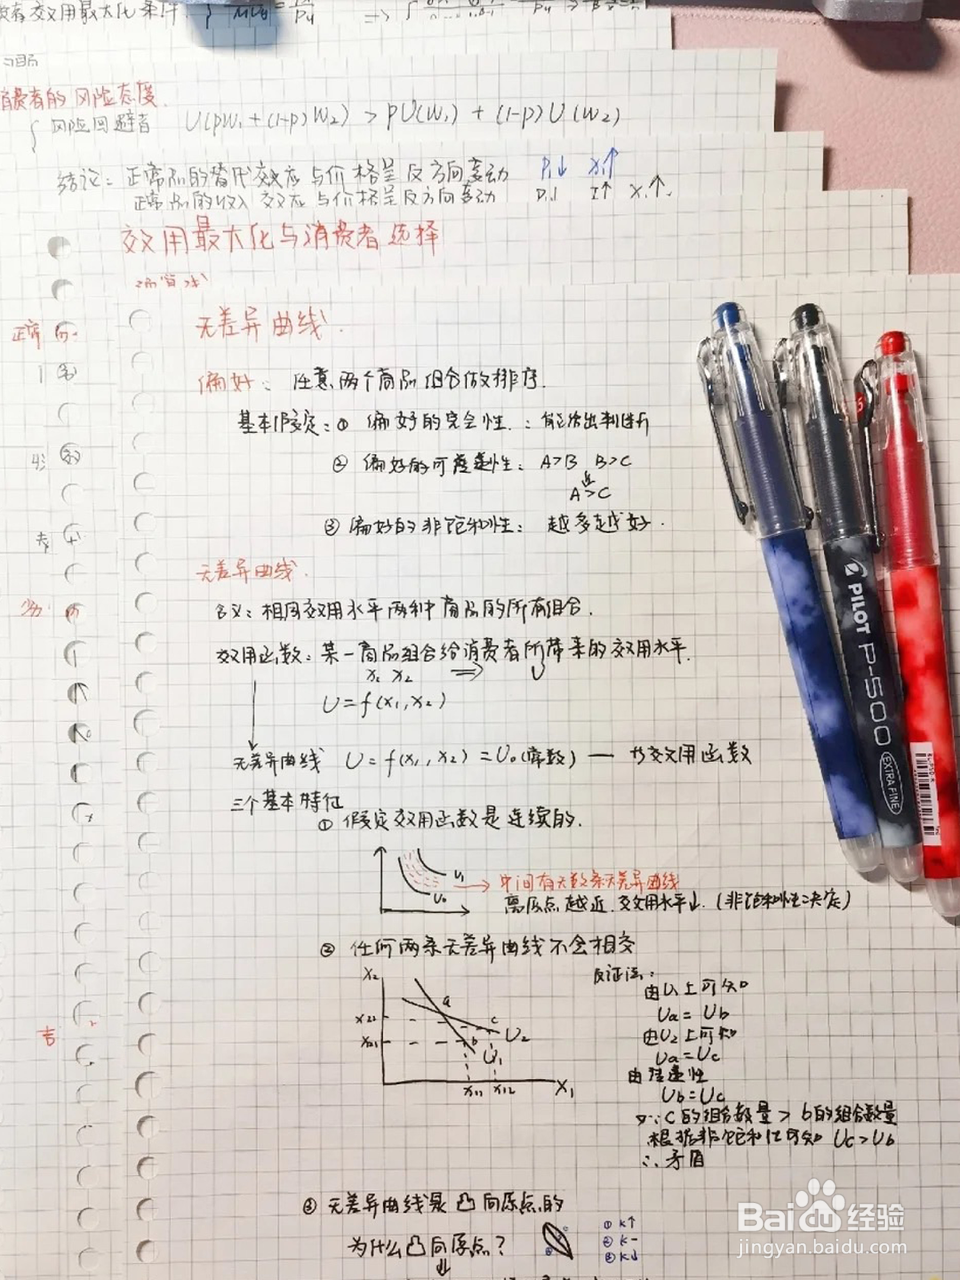 效用最大化条件
消费者的风险态度
风险回避者 U(pW₁+(1-p)W₂) > pU(W₁) + (1-p)U(W₂)
结论：正常品的替代效应与价格呈反方向变动 P₁↓ X₁↑
正常品的收入效应与价格呈反方向变动 P₁↓ I↑ X₁↑.
效用最大化与消费者选择
无差异曲线.
偏好：任意两个商品组合做排序.
基本假定：① 偏好的完全性.：能给出判断
② 偏好的可传递性：A>B B>C
A>C
③ 偏好的非饱和性：越多越好.
无差异曲线.
含义：相同效用水平两种商品的所有组合.
效用函数：某一商品组合给消费者所带来的效用水平.
X₁ X₂ ⇒ U
U=f(X₁,X₂)
无差异曲线 U=f(X₁,X₂)=U₀(常数) — 效用函数
三个基本特征
① 假定效用函数是连续的.
U₁
U₀
中间有无数条无差异曲线
离原点越近.效用水平↓.(非饱和性决定)
② 任何两条无差异曲线不会相交
X₂
X₂₂
X₂₁
a
c
b
U₂
U₁
X₁₁ X₁₂ X₁
反证法：
由U₁上可知
Ua=Ub
由U₂上可知
Ua=Uc
由传递性
Ub=Uc
又∵C的组合数量>b的组合数量
根据非饱和性可知 Uc>Ub
∴矛盾
③ 无差异曲线是凸向原点的
为什么凸向原点？
① K↑
② K-
③ K↓
PILOT P-500
EXTRA FINE
Baidu经验
jingyan.baidu.com